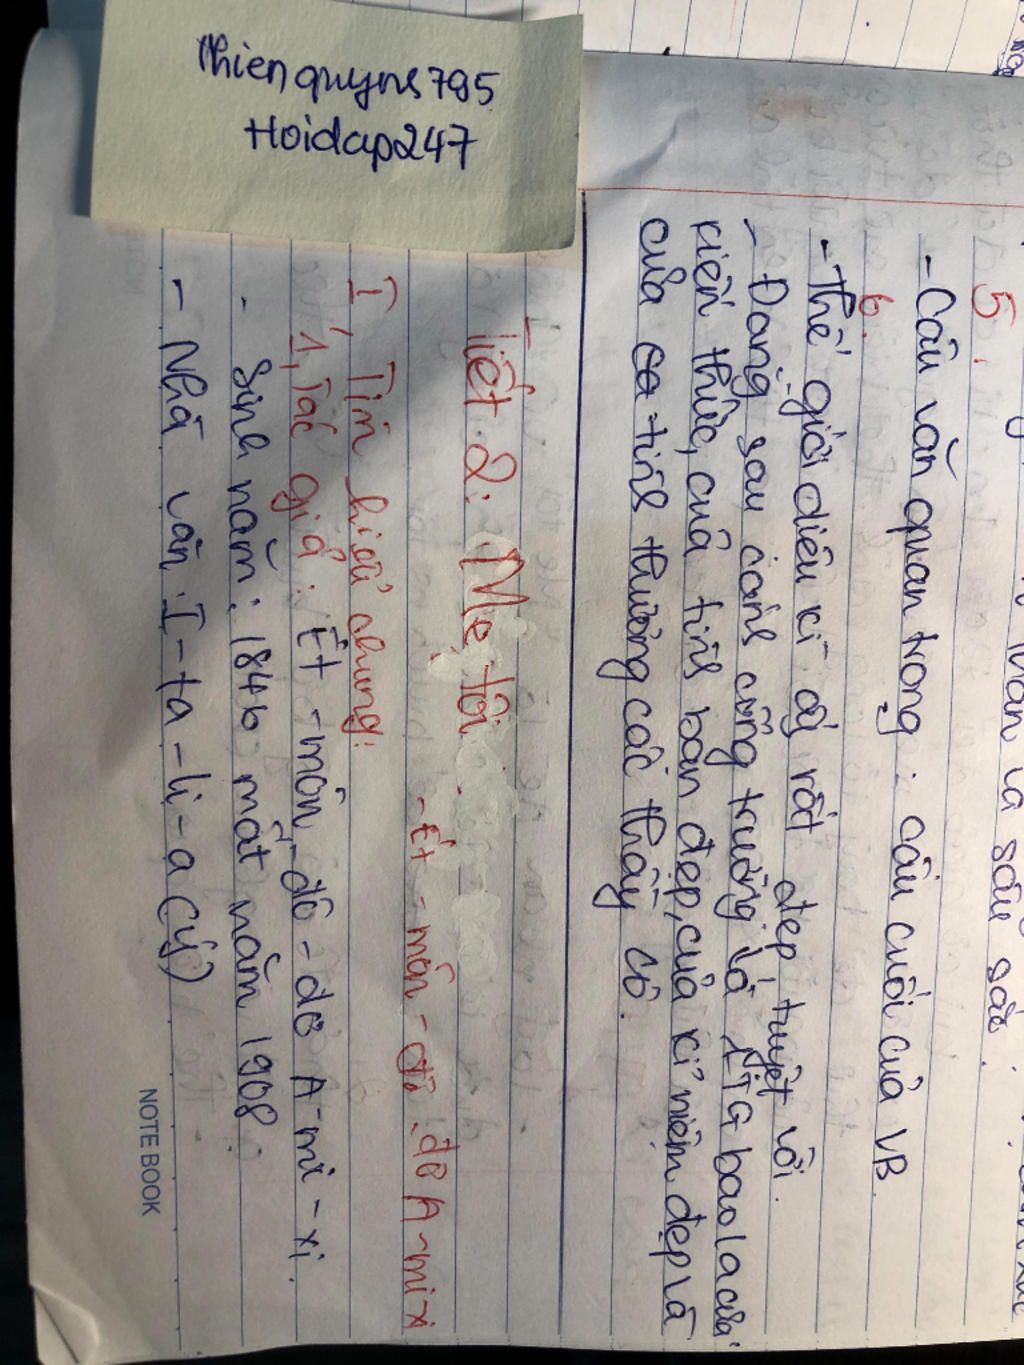 thienquyns795
Hoidap247
sâu sắc.
5.
- Câu văn quan trọng: câu cuối của VB
6.
- Thế giới diệu kì ấy rất đẹp, tuyệt vời.
- Đằng sau cánh cổng trường là 1TG bao la của
kiến thức, của tình bạn đẹp, của kỉ niệm đẹp và
của tình thương các thầy cô.
Tiết 2: Mẹ tôi.
- Ét - môn - đô đơ A-mi xi
I, Tìm hiểu chung:
1, Tác giả: Ét - môn - đô - đơ A-mi-xi.
- Sinh năm: 1846 mất năm 1908
- Nhà văn I-ta-li-a (Ý)
NOTEBOOK